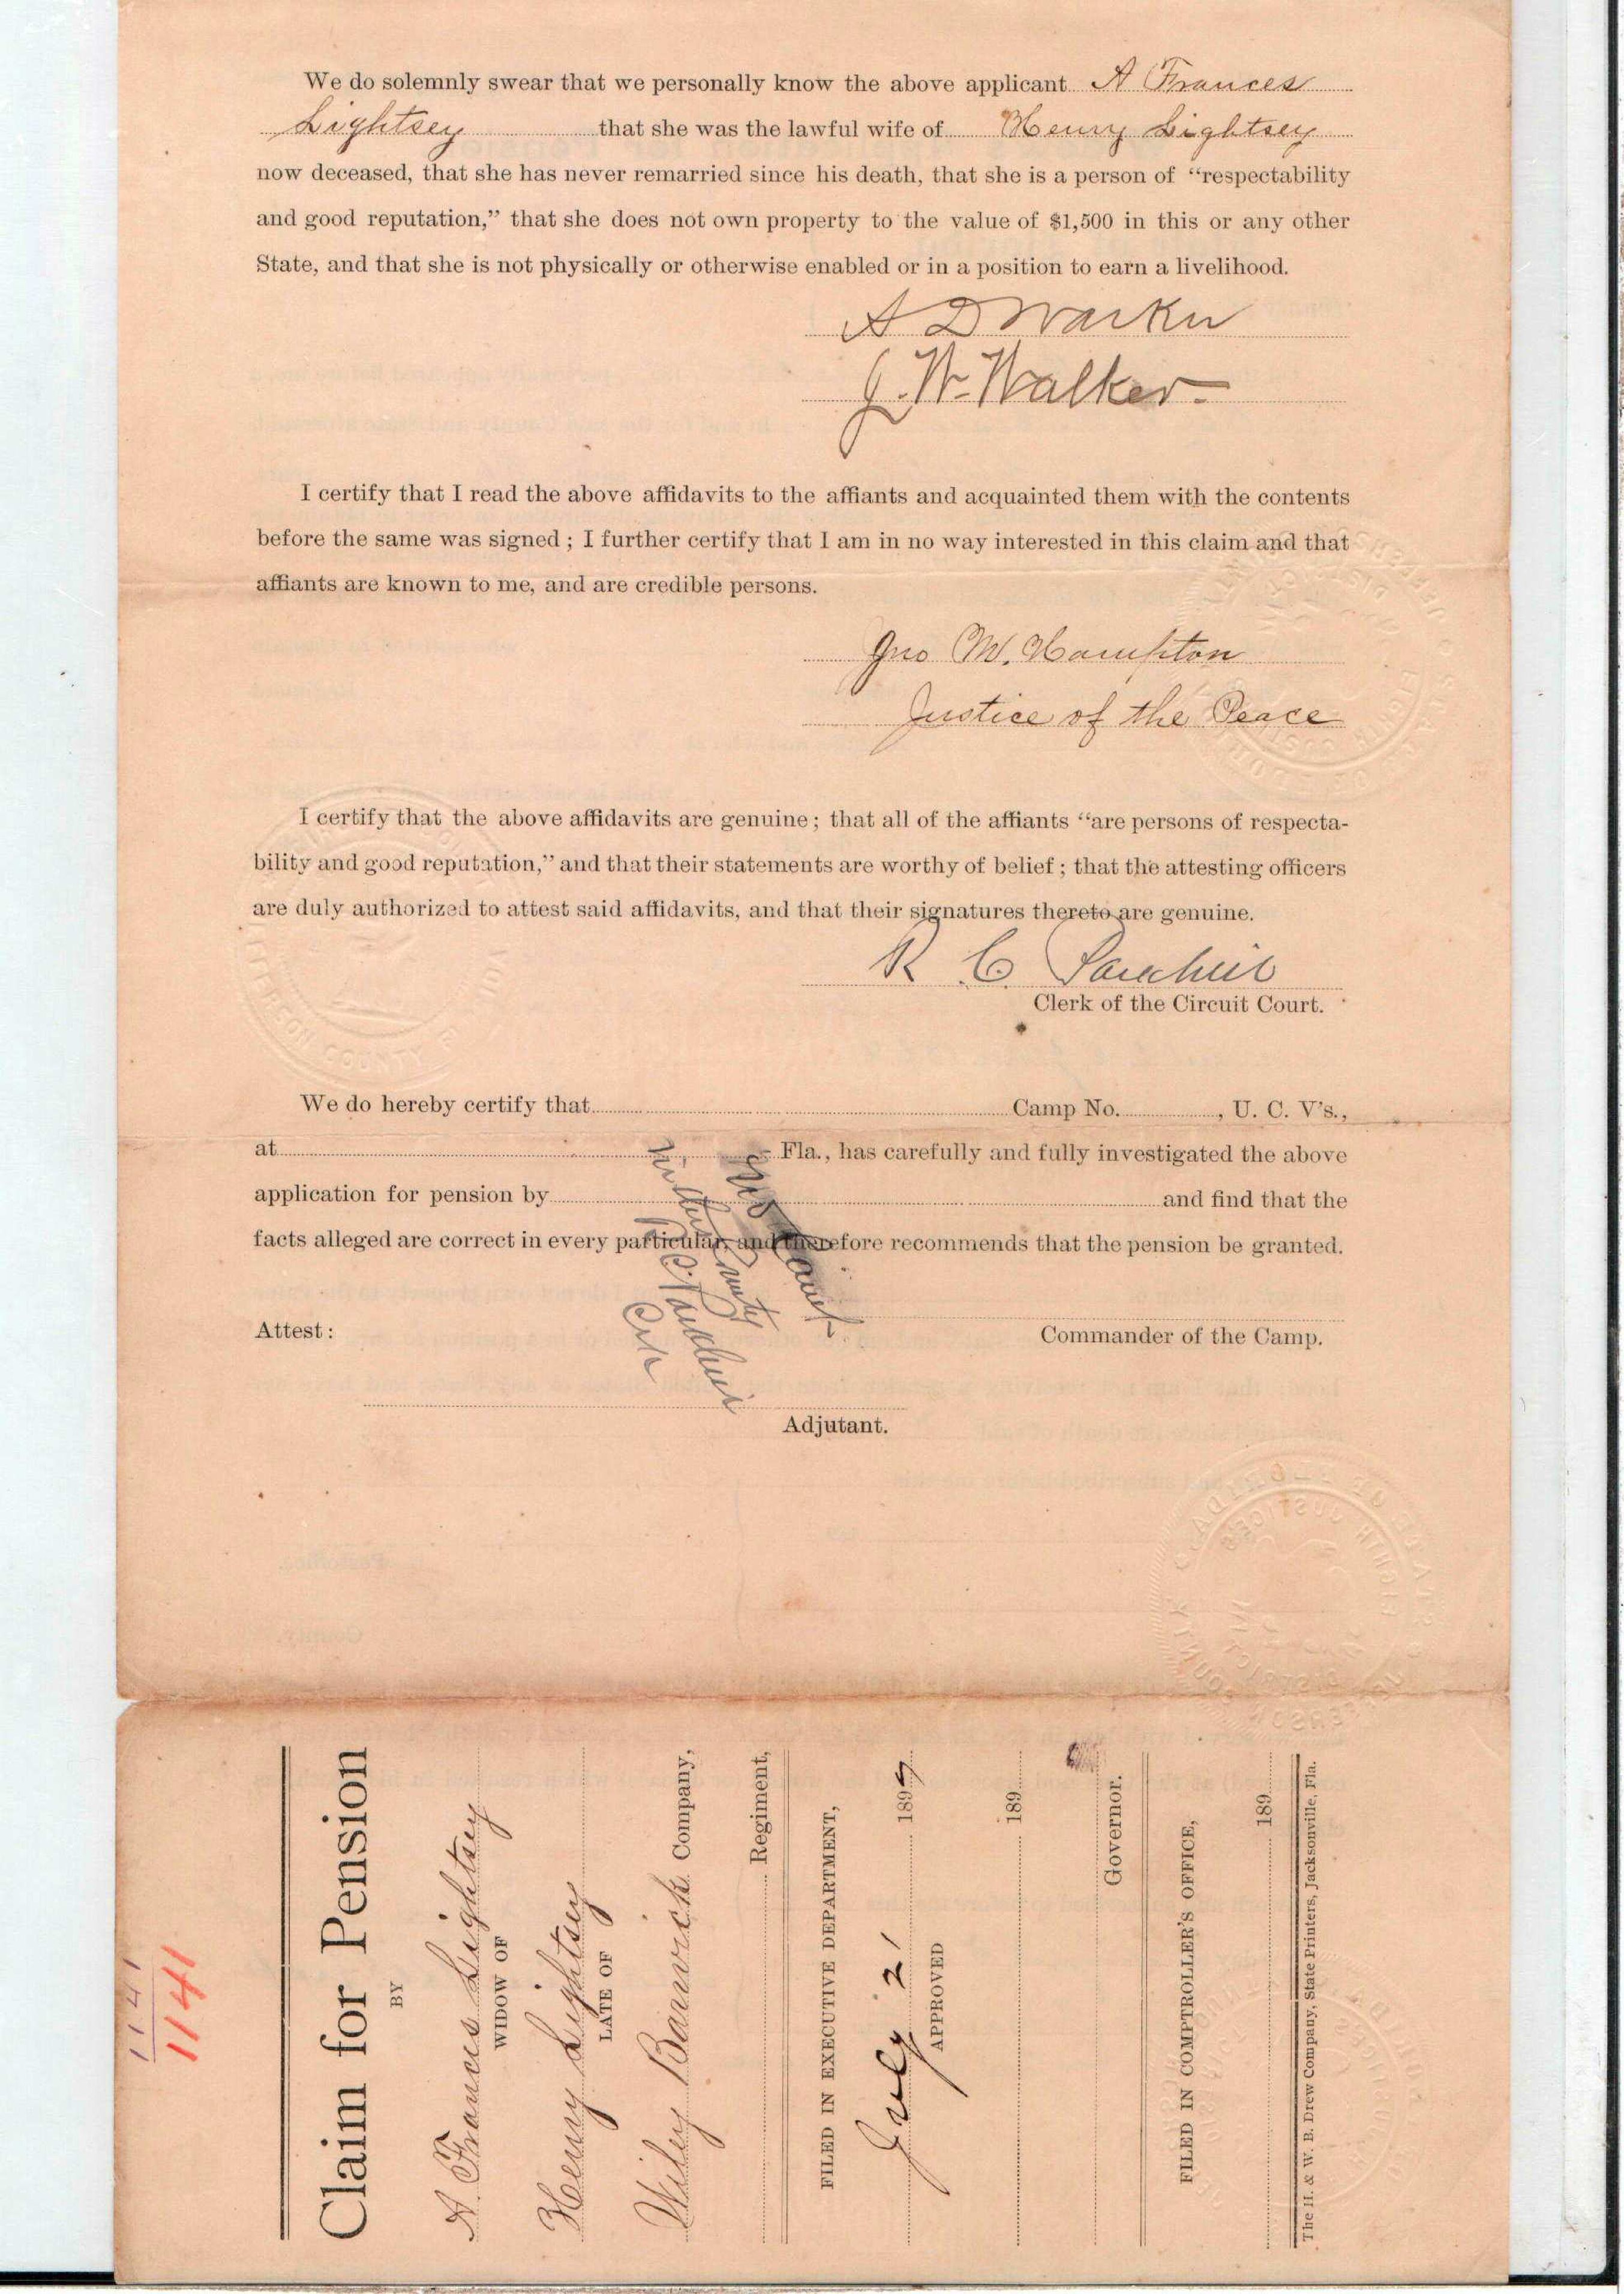 We do solemnly swear that we personally know the above applicant A Frances
Lightsey that she was the lawful wife of Henry Lightsey
now deceased, that she has never remarried since his death, that she is a person of “respectability
and good reputation,” that she does not own property to the value of $1,500 in this or any other
State, and that she is not physically or otherwise enabled or in a position to earn a livelihood.
A D
J. W. Walker
I certify that I read the above affidavits to the affiants and acquainted them with the contents
before the same was signed; I further certify that I am in no way interested in this claim and that
affiants are known to me, and are credible persons.
Jno M. Hampton
Justice of the Peace
I certify that the above affidavits are genuine; that all of the affiants “are persons of respecta-
bility and good reputation,” and that their statements are worthy of belief; that the attesting officers
are duly authorized to attest said affidavits, and that their signatures thereto are genuine.
R C
Clerk of the Circuit Court.
We do hereby certify that Camp No. , U. C. V's.,
at Fla., has carefully and fully investigated the above
application for pension by and find that the
facts alleged are correct in every particular, and therefore recommends that the pension be granted.
No Camp
in this County
Clk
Commander of the Camp.
Attest:
Adjutant.
1141
1141
Claim for Pension
BY
A. Frances Lightsey
WIDOW OF
Henry Lightsey
LATE OF
Wiley Barwick Company,
Regiment,
FILED IN EXECUTIVE DEPARTMENT,
July 21 1899
APPROVED
189
Governor.
FILED IN COMPTROLLER'S OFFICE,
189
The H. & W. B. Drew Company, State Printers, Jacksonville, Fla.